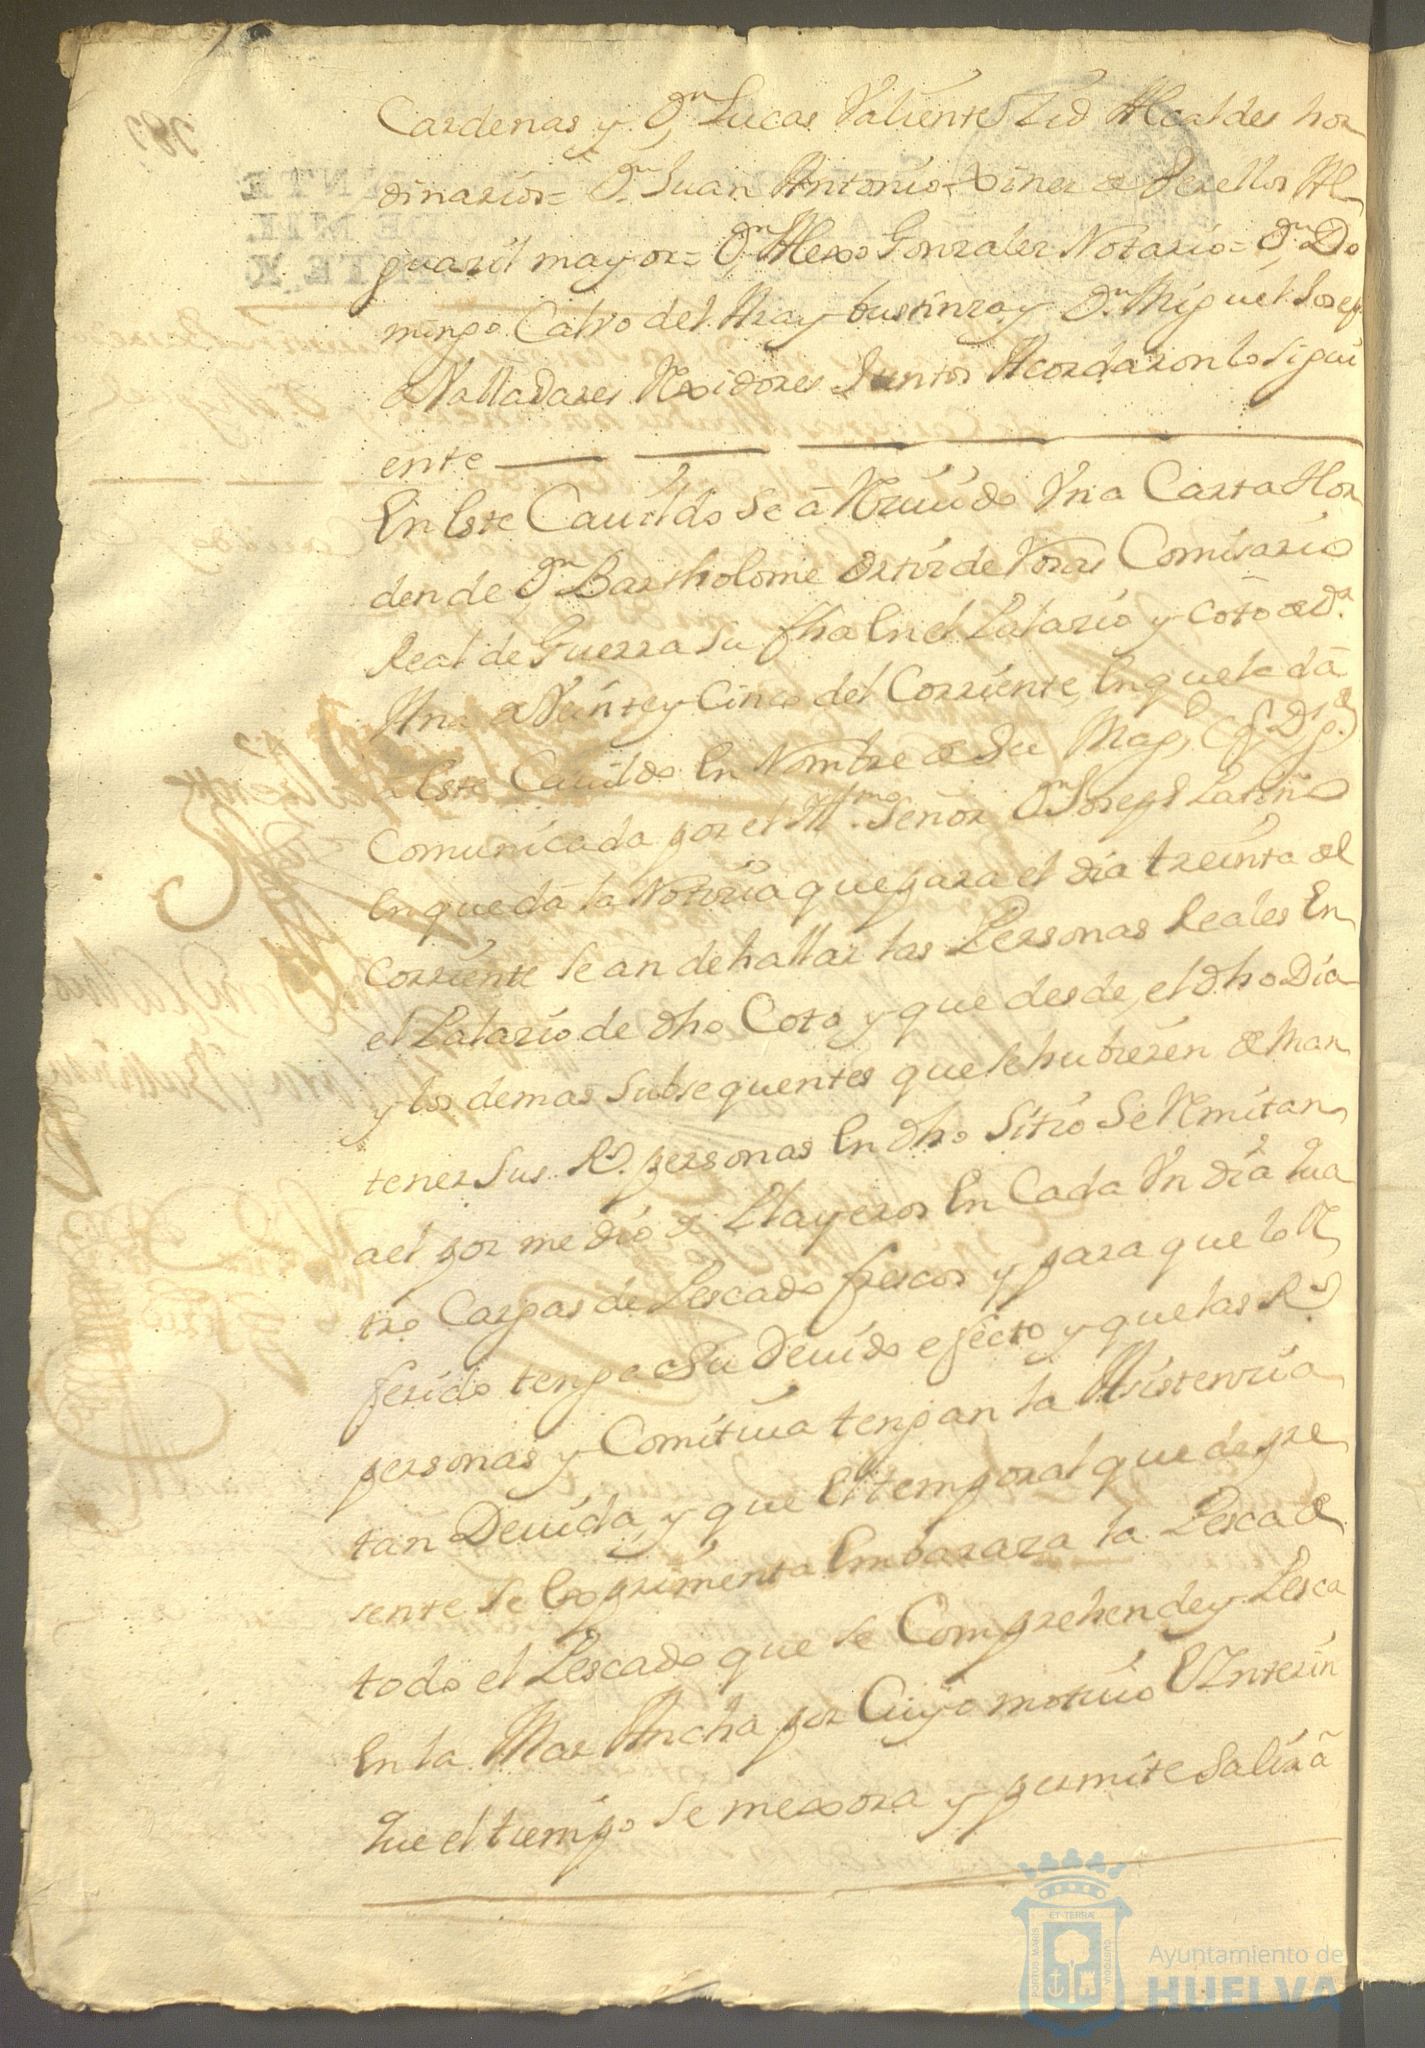 Cardenas y Dn Lucas Valiente Zid Alcaldes hor
dinarios= Dn Juan Antonio Xinez de Terellos Al
guazil mayor= Dn Alexo Gonzalez Notario= Dn Do
mingo Calvo del Hra y bustinza y Dn Miguel Joseph
de Valladares Rexidores Juntos Acordaron lo sigui
ente
En Este Cauildo se ā Rziuido Vna Carta Hor
den de Dn Bartholome Ortiz de Comisario
Real de Guerra su fha En el Palazio y coto de Da
Ana a Veinte y Cinco del Corriente, En que le dā
a Este Cauildo En Nombre de Su Magd (q Ds ge)
Comunicada por el Illmo Señor Dn Joseph Patiño
En que dā la Notizia que para el dia treinta del
Corriente se an de hallar las Personas Reales En
el Palazio de dho Coto y que desde, el dho Dia
y los demas subsequentes que se hubieren de Man
tener sus Rs personas En dho Sitio se Remitan
a el por medio de Playeros En Cada Vn dia qua
tro Cargas de Pescado frescos y para que lo Re
ferido tenga Su Deuido efecto y que las Rs
personas y Comitiua tengan la Asistenzia
tan Deuida, y que El temporal que de pre
sente se Exprimenta Embaraza la Pesca de
todo el Pescado que se Comprehende y Pesca
En la Mar Ancha por Cuyo motiuo E Ynterin
que el tiempo se mexora y permite Salir ā
Ayuntamiento de
HUELVA